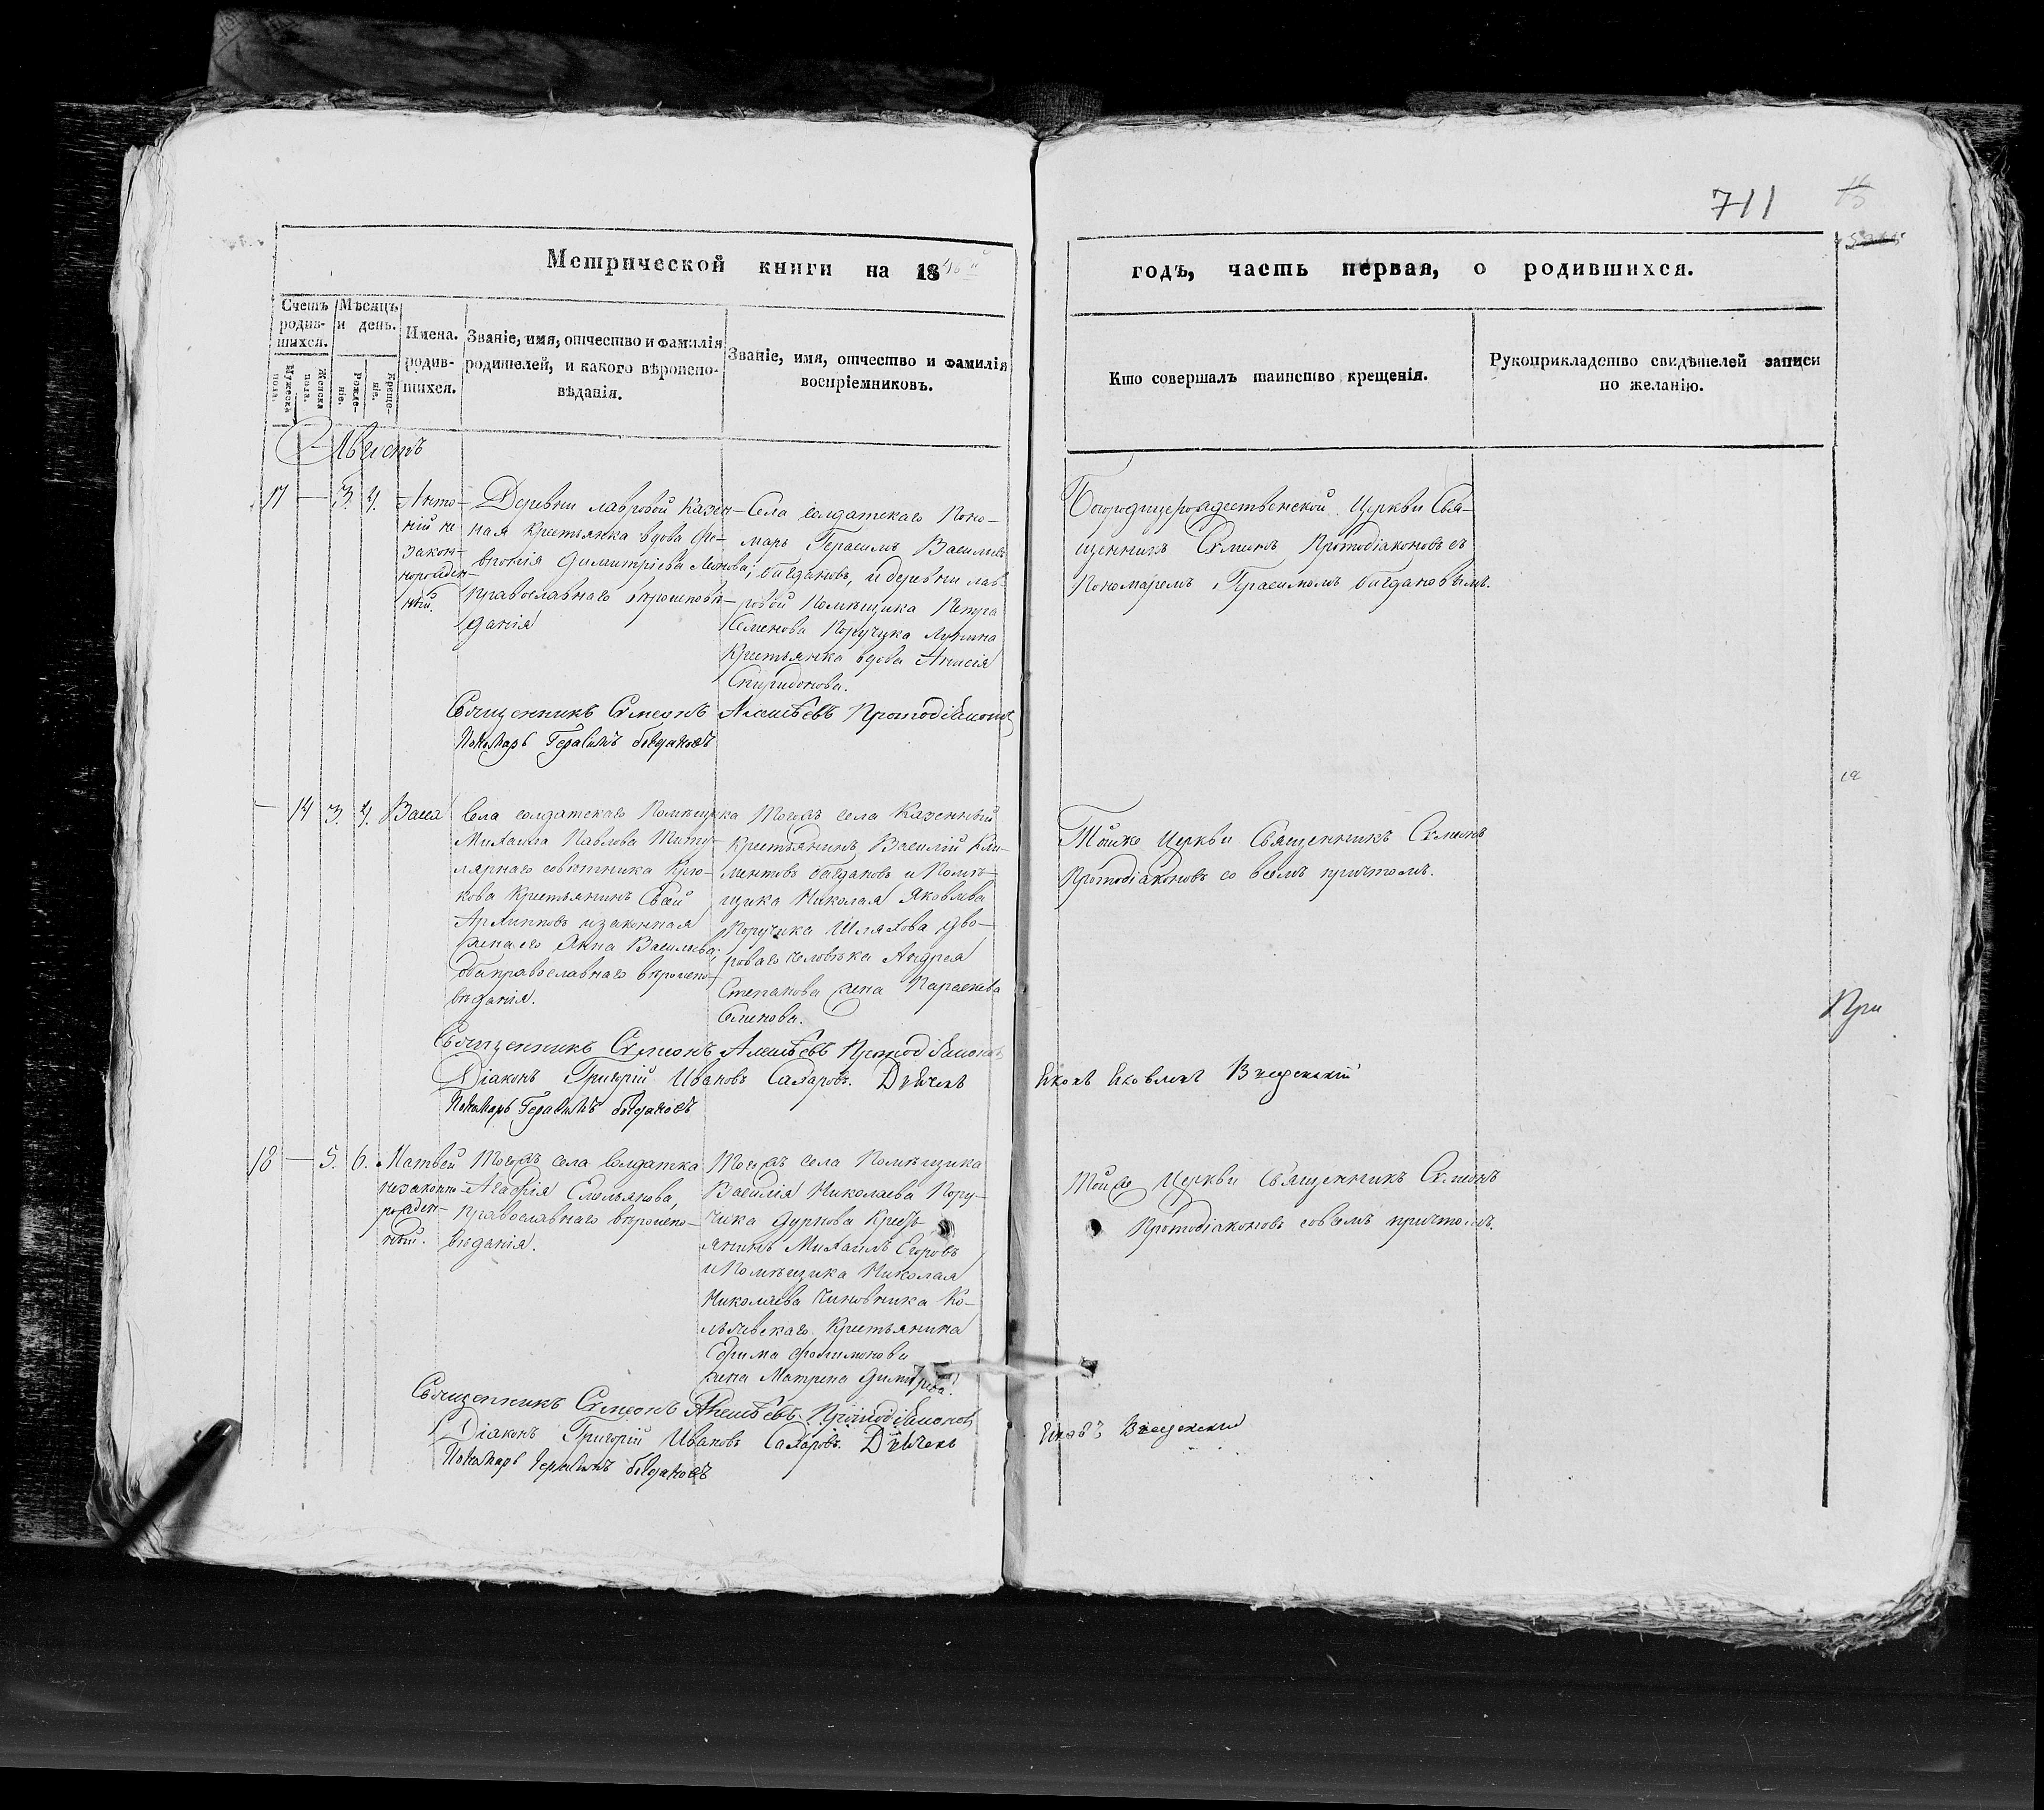 711
Метрической книги на 1846й
годъ, часть первая, о родившихся.
Счетъ родив-шихся.
Мѣсяцъ и день.
Мужеска пола.
Женска пола.
Рожде-ніе.
Креще-ніе.
Имена. родив-шихся.
Званіе, имя, отчество и фамилія
родителей, и какого вѣроиспо-
вѣданія.
Званіе, имя, отчество и фамилія
воспріемниковъ.
Кто совершалъ таинство крещенія.
Рукоприкладство свидѣтелей записи
по желанію.
Августъ
17 — 3. 4.
Анто-
ній не
закон-
норожден-
ный.
Деревни Лавровой Казен-
ная крестьянка вдова Фе-
вронія Димитріева
православнаго вѣроисповѣ-
данія
Села Солдатскаго Поно-
марь Герасимъ Васильевъ
Богдановъ, и деревни Лав-
ровой Помѣщика Петра
Семенова Поручика Лунина
Крестьянка вдова Анисія
Спиридонова.
Богородицерождественской Церкви Свя-
щенникъ Симеонъ Протодіаконовъ съ
Пономаремъ Герасимомъ Богдановымъ.
Священникъ Симеонъ Алексѣевъ Протодіаконовъ
Пономарь Герасимъ Богдановъ
— 14 3. 4. Васса
Села Солдатскаго Помѣщика
Михаила Павлова Титу-
лярнаго совѣтника Крю-
кова Крестьянинъ
Архиповъ и законная
жена его Анна Васильева,
оба православнаго вѣроиспо-
вѣданія.
Тогожъ села Казенный
Крестьянинъ Василій Кли-
ментовъ Богдановъ и Помѣ-
щика Николая Яковлева
Поручика Шляхова дво-
роваго человѣка Андрея
Степанова жена Параскева
Семенова.
Тойже Церкви Священникъ Симеонъ
Протодіаконовъ со всемъ причтомъ.
При
Священникъ Симеонъ Алексѣевъ Протодіаконовъ
Діаконъ Григорій Ивановъ Сахаровъ. Дьячекъ
Яковъ Яковлевъ Введенскій
Пономарь Герасимъ Богдановъ
18 — 5. 6. Матвей
незаконно-
рожден-
ный.
Тогожъ села Солдатка
Агафія Емельянова,
православнаго вѣроиспо-
вѣданія.
Тогожъ села Помѣщика
Василія Николаева Пору-
чика Дурнова Кресть-
янинъ Михаилъ Егоровъ
и Помѣщика Николая
Николаева Чиновника Ко-
Крестьянина
Ефима Филимонова
жена Матрена Димитріева.
Тойже Церкви Священникъ Симеонъ
Протодіаконовъ со всемъ причтомъ.
Священникъ Симеонъ Алексѣевъ Протодіаконовъ
Діаконъ Григорій Ивановъ Сахаровъ. Дьячекъ
Яковъ Введенскій
Пономарь Герасимъ Богдановъ